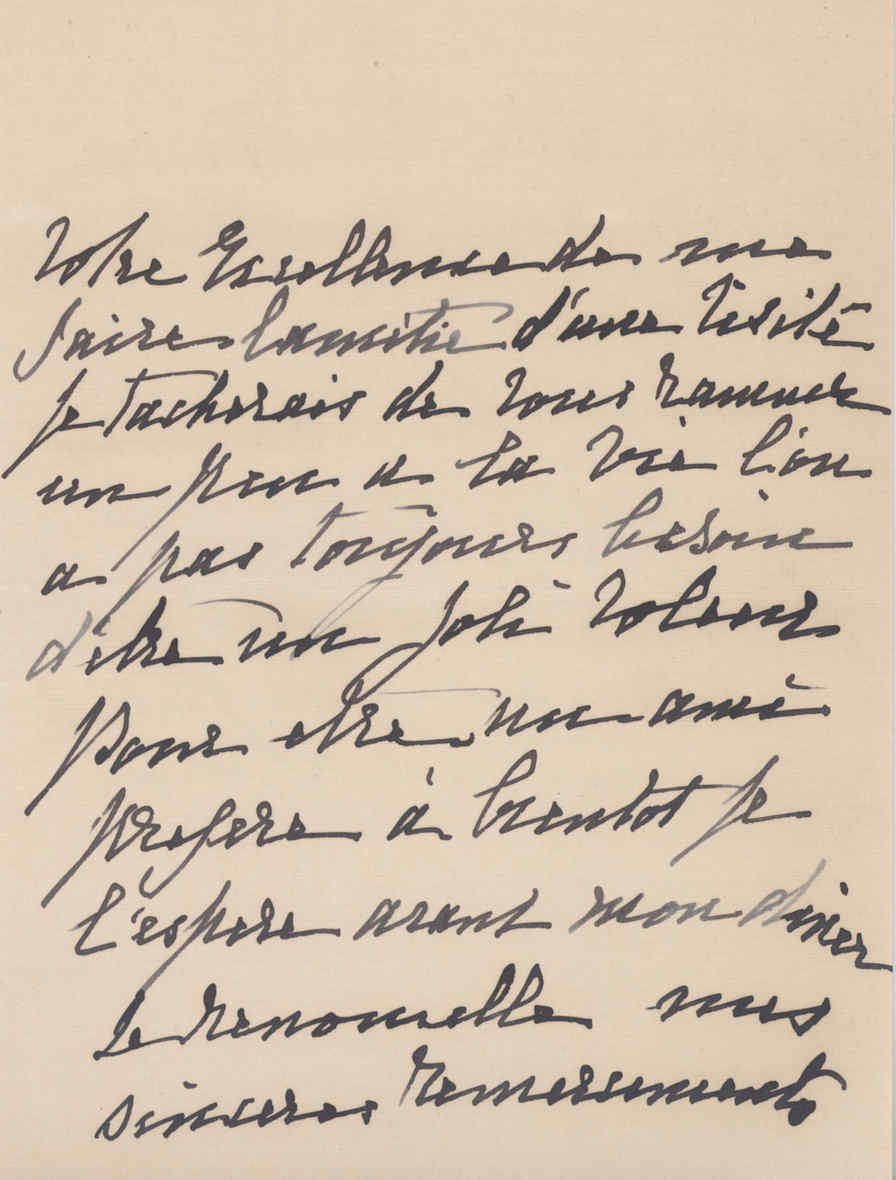 Votre Excellence de me
faire lamitié d'une visite
je tacherais de vous ramener
un peu a la vie l'on
a pas toujours besoin
d'etre un joli voleur
pour etre un ami
prefere à bientot je
l'espere avant mon diner
je renouvelle mes
sinceres remerciements